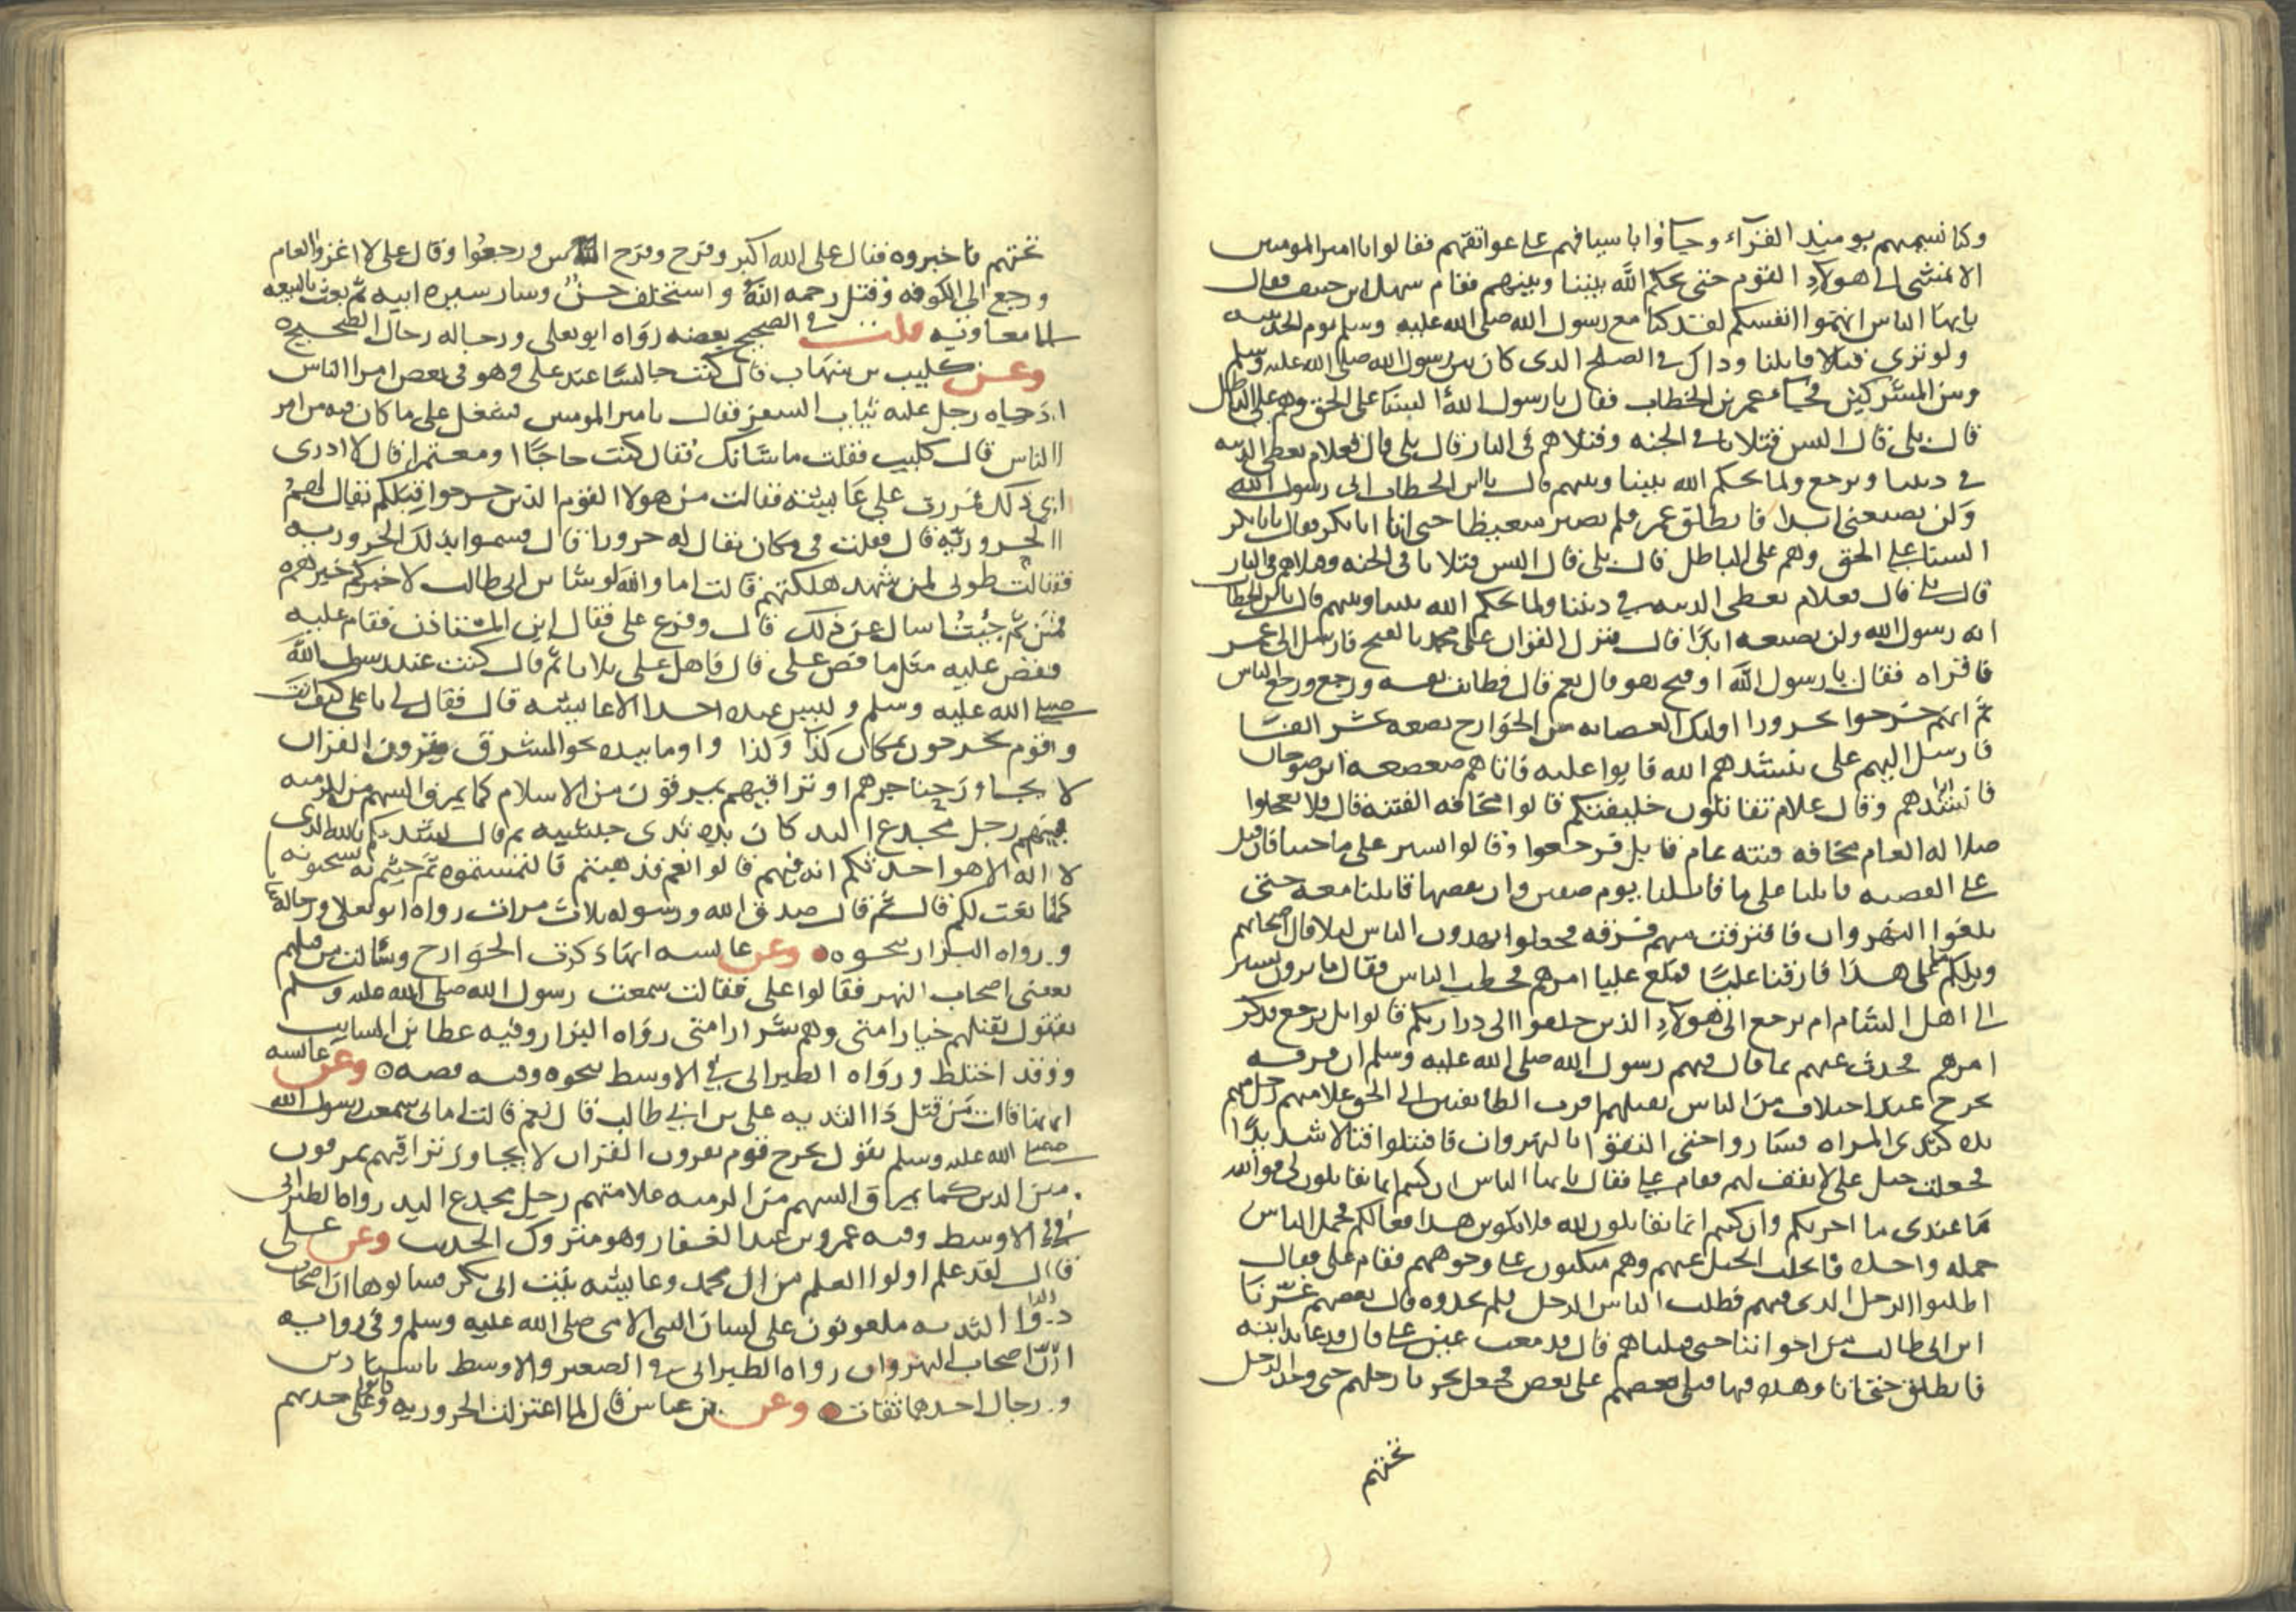 وكنا نسميهم يومئذ القراء وجاؤا باسيافهم على عواتقهم فقالوا يا امير المومنين
الا نمشي الى هولاء القوم حتى يحكم الله بيننا وبينهم فقام سهل ابن حنيف فقال
يايها الناس اتهموا انفسكم لقد كنا مع رسول الله صلى الله عليه وسلم يوم الحديبيه
ولو نرى قتالا قاتلنا وذاك في الصلح الذي كان بين رسول الله صلى الله عليه وسلم
وبين المشركين فجاء عمر بن الخطاب فقال يا رسول الله السنا على الحق وهم على الباطل
قال بلى قال اليس قتلانا في الجنه وقتلاهم في النار قال بلى قال فعلام نعطي الدنيه
في ديننا ونرجع ولما يحكم الله بيننا وبينهم قال يا ابن الخطاب اني رسول الله
ولن يضيعني ابدا فانطلق عمر فلم يصبر متغيظا حتى اتا ابا بكر فقال يابا بكر
السنا على الحق وهم على الباطل قال بلى قال اليس قتلانا في الجنه وقتلاهم في النار
قال بلى قال فعلام نعطي الدنيه في ديننا ولما يحكم الله بيننا وبينهم قال يا ابن الخطاب
انه رسول الله ولن يضيعه ابدا قال فنزل القران على محمد بالفتح فارسل الى عمر
فاقراه فقال يا رسول الله اوفتح هو قال نعم قال فطابت نفسه ورجع ورجع الناس
ثم انهم خرجوا بحرورا اولئك العصابه من الخوارج بضعه عشر الفا
فارسل اليهم علي ننشدهم الله فابوا عليه فاتاهم صعصعه ابن صوحان
فانشدهم وقال علام تقاتلون خليفتكم قالوا مخافه الفتنه قال فلا تعجلوا
ضلاله العام مخافه فتنه عام قابل فرجعوا وقالوا نسير على ما جينا فان قبل
علي القضيه قاتلنا على ما قاتلنا يوم صفين وان نقضها قاتلنا معه حتى
بلغوا النهروان فافترقت منهم فرقه فجعلوا يهدون الناس ليلا قال اصحابهم
ويلكم ما على هذا فارقنا عليا فبلغ عليا امرهم فخطب الناس فقال ما ترون نسير
الى اهل الشام ام نرجع الى هولاء الذين خلفوا الى دراريكم قالوا بل نرجع فذكر
امرهم فحدث عنهم بما قال فيهم رسول الله صلى الله عليه وسلم ان فرقه
تخرج عند اختلاف من الناس تقتلهم اقرب الطائفتين الى الحق علامتهم رجل منهم
يده كثدي المراه فساروا حتى التقوا بالنهروان فاقتتلوا قتالا شديدا
فجعلت خيل علي لا تقف لهم فقام علي فقال يايها الناس ان كنتم انما تقاتلون لي فوالله
ما عندي ما اجزيكم وان كنتم انما تقاتلون لله فلا يكونن هذا فعالكم فحمل الناس
حمله واحده فانجلت الخيل عنهم وهم منكبون على وجوههم فقام علي فقال
اطلبوا الرجل الذي فيهم فطلب الناس الرجل فلم يجدوه قال بعضهم غرنا
ابن ابي طالب من اخواننا حتى قتلناهم قال فدمعت عين علي قال فدعا بدابته
فانطلق حتى اتا وهده فيها قتلى بعضهم على بعض فجعل يجر بارجلهم حتى وجد الرجل
تحتهم
تحتهم فاخبروه فقال علي الله اكبر وفرح وفرح الناس ورجعوا وقال علي لا اغزوا العام
ورجع الى الكوفه وقتل رحمه الله واستخلف حسن وسار سيره ابيه ثم بعث بالبيعه
الى معاويه قلت في الصحيح بعضه رواه ابو يعلى ورجاله رجال الصحيح
وعن كليب بن شهاب قال كنت جالسا عند علي وهو في بعض امر الناس
اذ جاه رجل عليه ثياب السفر فقال يا امير المومنين فشغل علي ما كان فيه من امر
الناس قال كليب فقلت ما شانك فقال كنت حاجا او معتمرا قال لا ادري
اي ذلك فمررت على عايشه فقالت من هولا القوم الذين خرجوا قبلكم يقال لهم
الحروريه قال فقلت في مكان يقال له حرورا قال فسموا بذلك الحروريه
فقالت طوبى لمن شهد هلكتهم قالت اما والله لو شا ابن ابي طالب لاخبركم خبرهم
فمن ثم جئت اسال عن ذلك قال وفرغ علي فقال اين المستاذن فقام عليه
فقص عليه مثل ما قص علي قال فاهل علي ثلاثا ثم قال كنت عند رسول الله
صلى الله عليه وسلم وليس عنده احد الا عايشه قال فقال لي يا علي كيف انت
وقوم يخرجون بمكان كذا وكذا واوما بيده نحو المشرق يقرون القران
لا يجاوز حناجرهم او تراقيهم يمرقون من الاسلام كما يمرق السهم من الرميه
فيهم رجل مخدج اليد كان يده ثدي حبشيه ثم قال نشدتكم بالله الذي
لا اله الا هو احدثتكم انه فيهم قالوا نعم فذهبتم فالتمستموه ثم جيتم به تسحبونه
كما نعت لكم قال ثم قال صدق الله ورسوله ثلاث مرات رواه ابو يعلى ورجاله ثقات
ورواه البزار بنحوه وعن عايشه انها ذكرت الخوارج وسالت من قتلهم
يعني اصحاب النهر فقالوا علي فقالت سمعت رسول الله صلى الله عليه وسلم
يقول يقتلهم خيار امتي وهم شرار امتي رواه البزار وفيه عطا بن السايب
وقد اختلط ورواه الطبراني في الاوسط بنحوه وفيه قصه وعن عايشه
انها قالت من قتل ذا الثديه علي بن ابي طالب قال نعم قالت اما اني سمعت رسول الله
صلى الله عليه وسلم يقول يخرج قوم يقرون القران لا يجاوز تراقيهم يمرقون
من الدين كما يمرق السهم من الرميه علامتهم رجل مخدج اليد رواه الطبراني
في الاوسط وفيه عمرو بن عبد الغفار وهو متروك الحديث وعن علي
قال لقد علم اولوا العلم من ال محمد وعايشه بنت ابي بكر فسالوها ان اصحاب
ذوا الثديه ملعونون على لسان النبي الامي صلى الله عليه وسلم وفي روايه
ان اصحاب النهروان رواه الطبراني في الصغير والاوسط باسنادين
ورجال احدهما ثقات وعن بن عباس قال لما اعتزلت الحروريه وكانوا على حدتهم